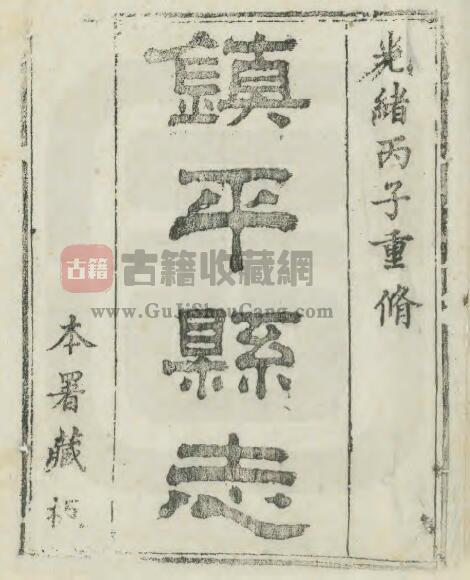 光緒丙子重脩
鎮平縣志
本署藏板
古籍 古籍收藏網
www.GuJiShouCang.com